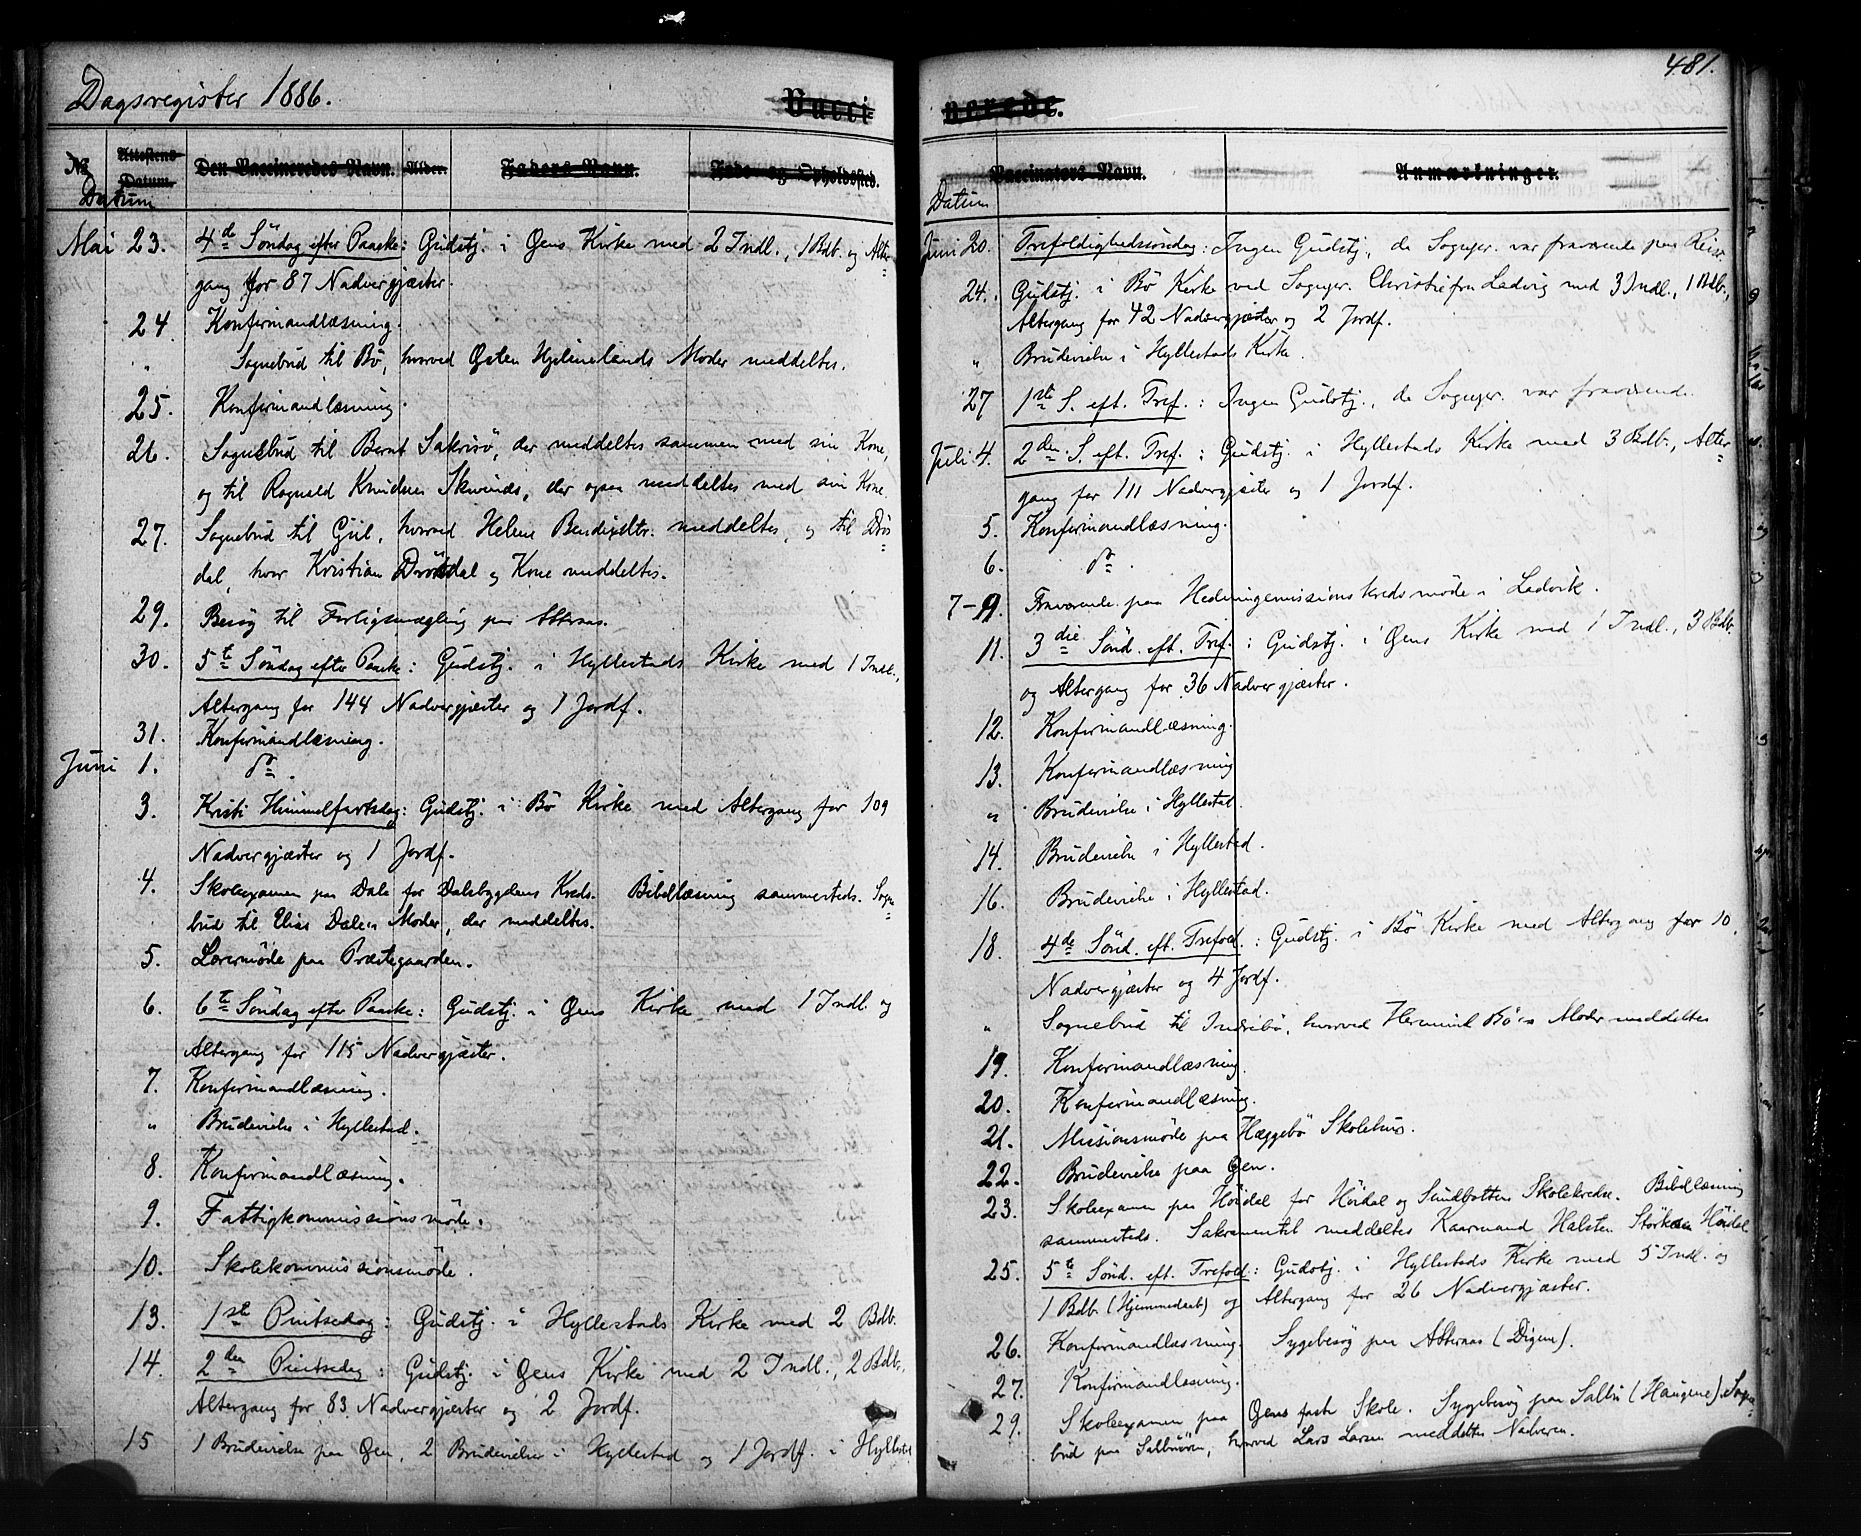 Dagsregister 1886.
Vacci
No.
Attestens Datum.
Den Vaccineredes Navn.
Alder.
Faders Navn.
Føde- og Opholdssted.
Datum
Mai 23. 4de Søndag efter Paaske: Gudstj. i Øens Kirke med 2 Indl., 1 Bdb. og Alter-
gang for 87 Nadvergjæster.
24 Konfirmandlæsning.
" Sognebud til Bø, hvorved Østen Hjelmelands Moder meddeltes.
25. Konfirmandlæsning.
26. Sognebud til Bernt Sakrisø, der meddeltes sammen med sin Kone,
og til Rognald Knudsen, der ogsaa meddeltes med sin Kone.
27. Sognebud til Giil, hvorved Helene Bendixdtr. meddeltes, og til Drøs-
dal, hvor Kristian Drøsdal og Kone meddeltes.
29. Besøg til Forligsmægling paa Atteraas.
30. 5te Søndag efter Paaske: Gudstj. i Hyllestads Kirke med 1 Indl.,
Altergang for 144 Nadvergjæster og 1 Jordf.
31. Konfirmandlæsning.
Juni 1. do.
3. Kristi Himmelfartsdag: Gudstj. i Bø Kirke med Altergang for 109
Nadvergjæster og 1 Jordf.
4. Skoleexamen paa Dale for Dalsbygdens Kreds. Bibellæsning sammesteds. Sogne-
bud til Elias Dale's Moder, der meddeltes.
5. Lærermøde paa Præstegaarden.
6. 6te Søndag efter Paaske: Gudstj. i Øens Kirke med 1 Indl. og
Altergang for 115 Nadvergjæster.
7. Konfirmandlæsning.
" Brudevielse i Hyllestad.
8. Konfirmandlæsning.
9. Fattigkommissionsmøde.
10. Skolekommissionsmøde.
13. 1ste Pintsedag: Gudstj. i Hyllestads Kirke med 2 Bdb.
14. 2den Pintsedag: Gudstj. i Øens Kirke med 2 Indl., 2 Bdb.,
Altergang for 83 Nadvergjæster og 2 Jordf.
15 1 Brudevielse paa Øen, 2 Brudevielser i Hyllestad og 1 Jordf. i Hyllestad
481.
nerede.
Vaccinators Navn.
Anmærkninger.
Datum
Juni 20. Trefoldighedssøndag: Ingen Gudstj., da Sognepr. var fraværende paa Reise.
24. Gudstj. i Bø Kirke ved Sognepr. Christie fra Ladvig med 3 Indl., 1 Bdb.,
Altergang for 42 Nadvergjæster og 2 Jordf.
" Brudevielse i Hyllestads Kirke.
27 1ste S. eft. Tref.: Ingen Gudstj., da Sognepr. var fraværende.
Juli 4. 2den S. eft. Tref.: Gudstj. i Hyllestads Kirke med 3 Bdb., Alter-
gang for 111 Nadvergjæster og 1 Jordf.
5. Konfirmandlæsning.
6. do.
7-9. Fraværende paa Hedningemissionskredsmøde i Ladvik.
11. 3die Sønd. eft. Tref.: Gudstj. i Øens Kirke med 1 Indl., 3 Bdb.
og Altergang for 36 Nadvergjæster.
12. Konfirmandlæsning.
13. Konfirmandlæsning
" Brudevielse i Hyllestad.
14. Brudevielse i Hyllestad.
16. Brudevielse i Hyllestad.
18. 4de Sønd. eft. Trefold.: Gudstj. i Bø Kirke med Altergang for 10
Nadvergjæster og 4 Jordf.
" Sognebud til Indrebø, hvorved Hermund Bø's Moder meddeltes
19. Konfirmandlæsning.
20. Konfirmandlæsning.
21. Missionsmøde paa Hæggebø Skolehus.
22. Brudevielse paa Øen.
23. Skoleexamen paa Høidal for Høidal og Sundbottens Skolekredse. Bibellæsning
sammesteds. Sakramentet meddeltes Kaarmand Halsten Størksen Høidal
25. 5te Sønd. eft. Trefold.: Gudstj. i Hyllestads Kirke med 5 Indl. og
1 Bdb. (Hjemmedøbt) og Altergang for 26 Nadvergjæster.
26. Konfirmandlæsning. Sygebesøg paa Atteraas (Digen).
27. Konfirmandlæsning.
29. Skoleexamen paa Øens faste Skole. Sygebesøg paa Salbu (Haugene). Sogne-
bud paa, hvorved Lars Larsen meddeltes Nadveren.